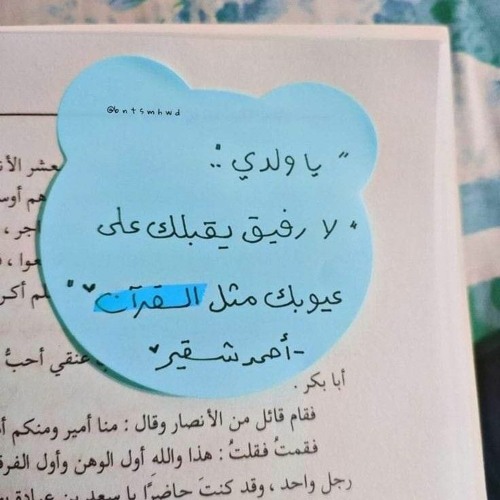 @bntsmhwd
" يا ولدي ..
لا رفيق يقبلك على
عيوبك مثل القرآن "
-أحمد شقير
عشر الأنـ
هم أوسـ
اجر ،
ـعوا ،
ـلم أكر
عنقي أحبُّ
أبا بكر .
فقام قائل من الأنصار وقال : منا أمير ومنكم أ
فقمتُ فقلتُ : هذا والله أول الوهن وأول الفرقـ
رجل واحد ، وقد كنتَ حاضرًا يا سعد بن عبادة